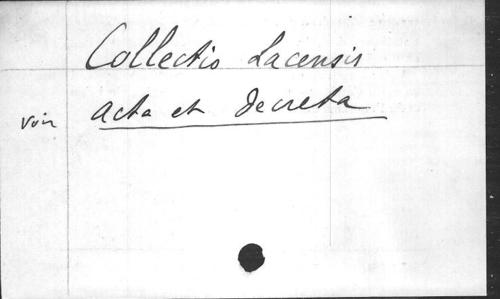 Collectio Lacensis
voir Acta et Decreta